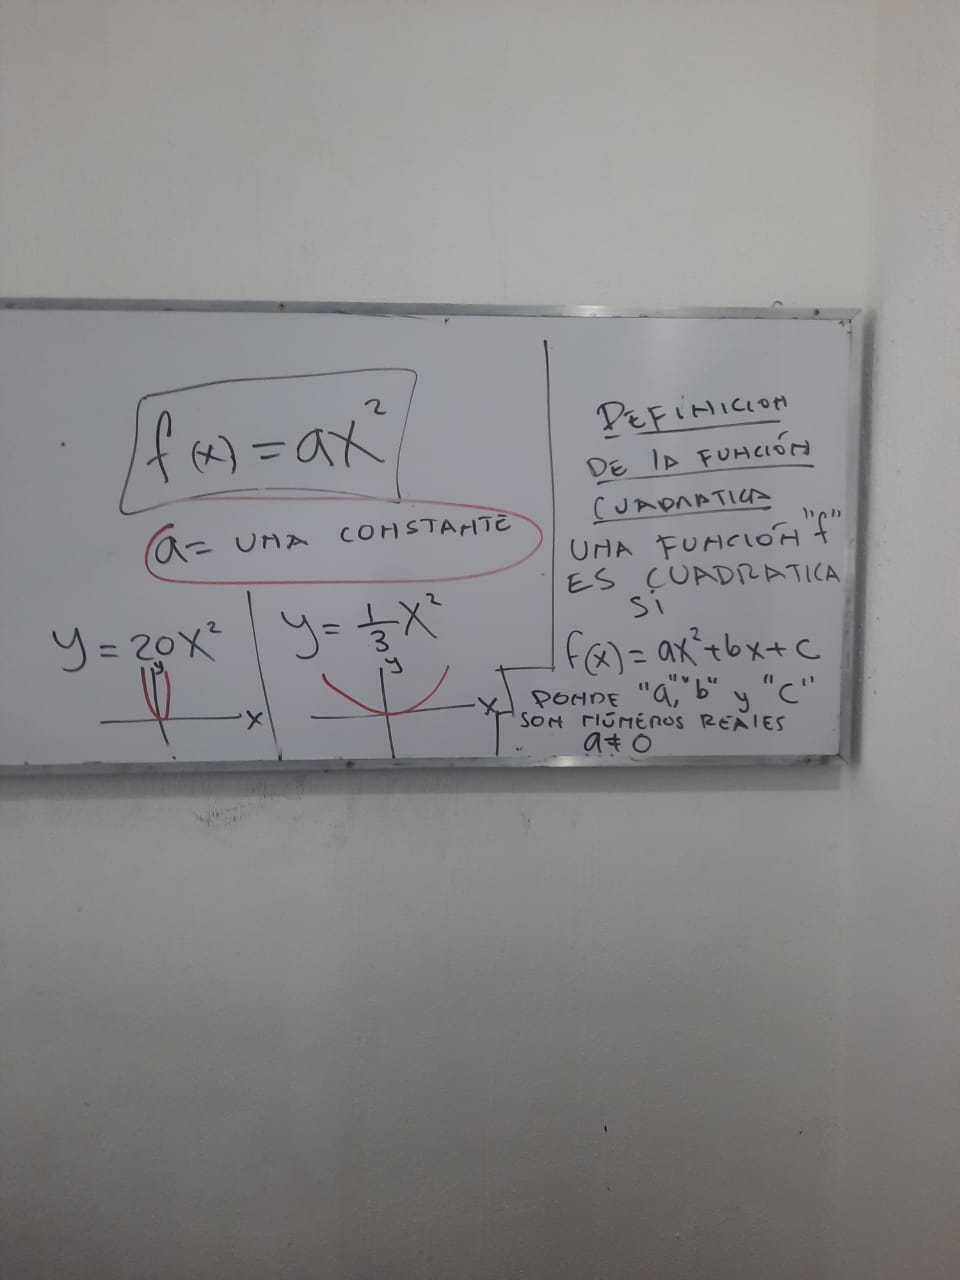 f(x) = ax²
a = UNA CONSTANTE
y = 20x²
y
x
y = 1/3 x²
y
x
DEFINICION
DE LA FUNCIÓN
CUADRATICA
UNA FUNCIÓN "f"
ES CUADRATICA
SI
f(x) = ax² + bx + c
DONDE "a," "b" y "c"
SON NÚMEROS REALES
a ≠ 0